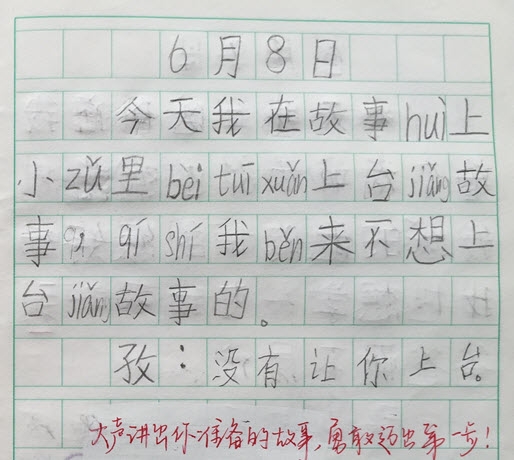 6月8日
今天我在故事huì上
小zǔ里bèi tuī xuǎn上台jiǎng故
事 qí shí我běn来不想上
台jiǎng故事的。
孜：没有让你上台。
大声讲出你准备的故事,勇敢迈出第一步!